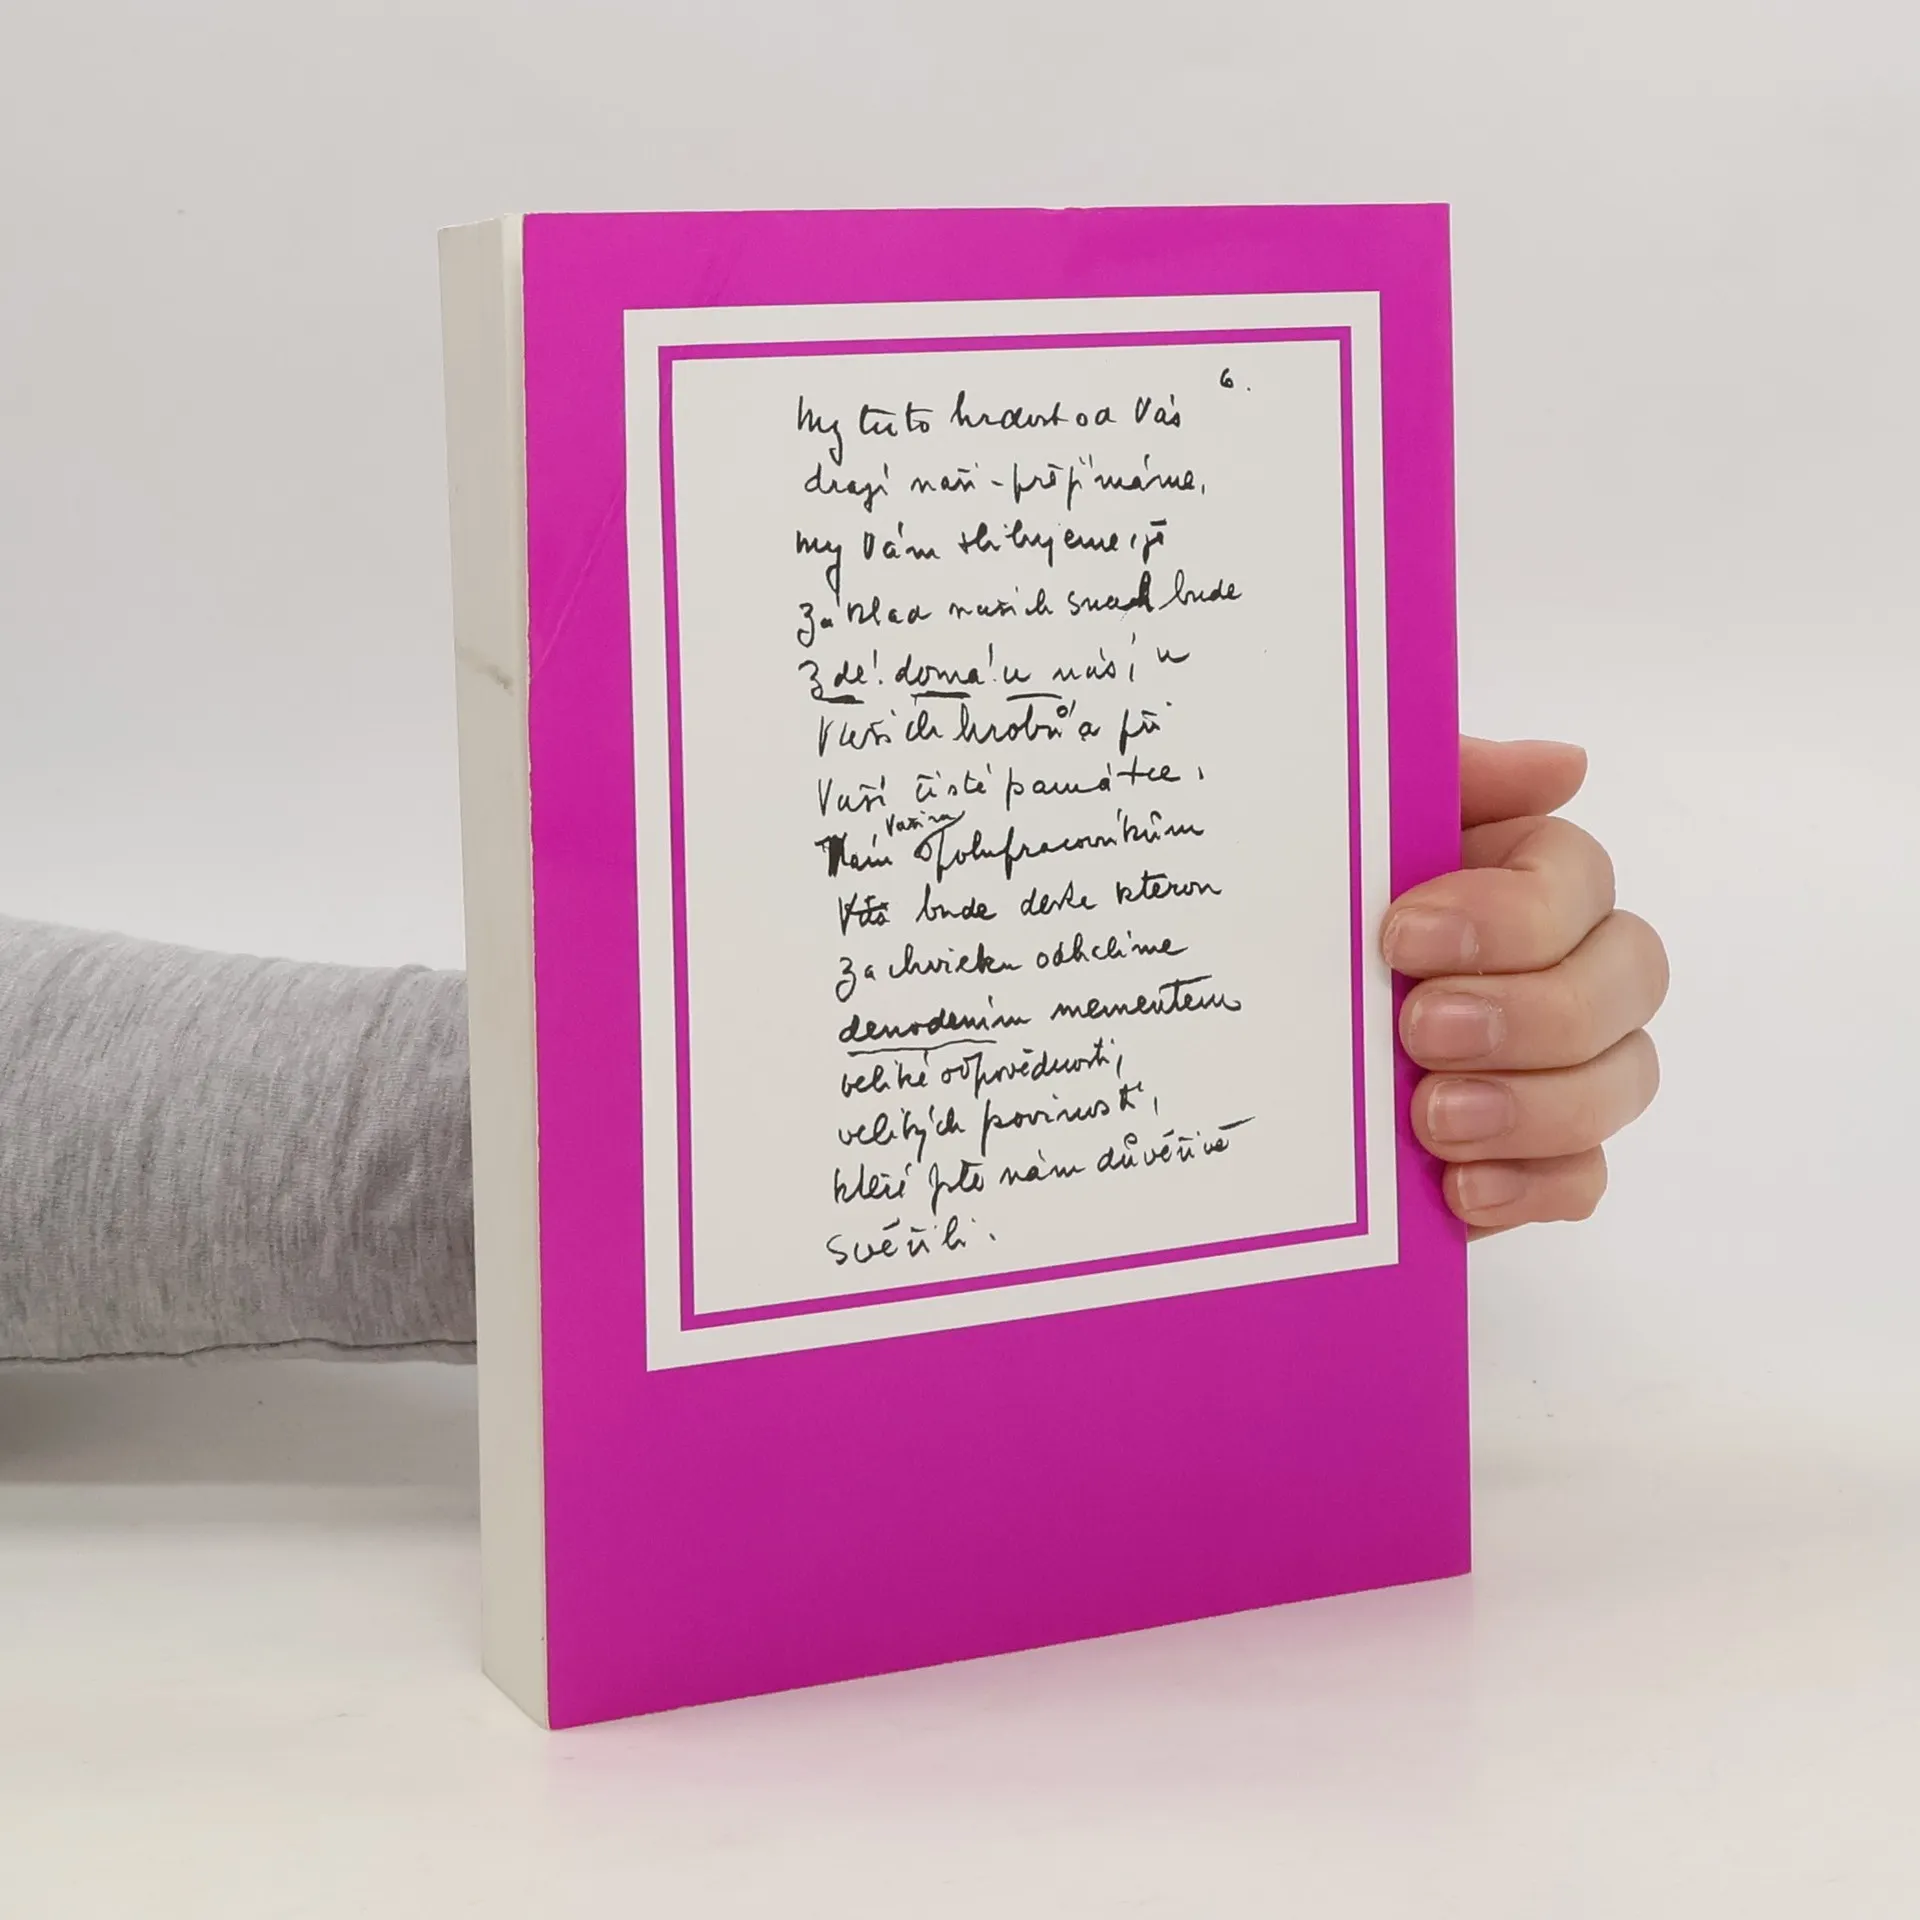 6.
My tuto hrdost od Vás
drazí naši - přijímáme,
my Vám slibujeme, že
Základ našich snah bude
Zde! doma! u nás, u
Vašich hrobů a při
Vaší čisté památce,
Vašim
Nám spolupracovníkům
bude deska kterou
za chvilku odhalíme
denodením mementem
veliké odpovědnosti,
velikých povinností,
které jste nám důvěřivě
svěřili.